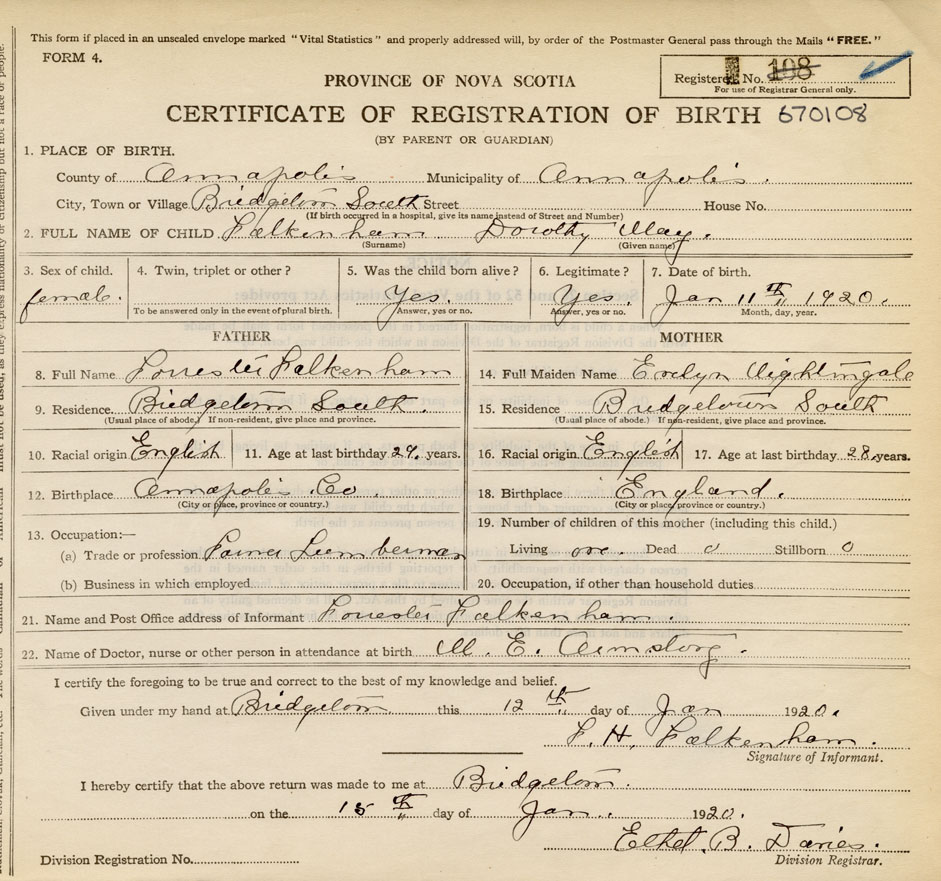 This form if placed in an unsealed envelope marked "Vital Statistics" and properly addressed will, by order of the Postmaster General pass through the Mails "FREE."
FORM 4.
Registered No. 108
For use of Registrar General only.
PROVINCE OF NOVA SCOTIA
CERTIFICATE OF REGISTRATION OF BIRTH 670108
(BY PARENT OR GUARDIAN)
1. PLACE OF BIRTH.
County of Annapolis Municipality of Annapolis.
City, Town or Village Bridgetown South Street House No.
(If birth occurred in a hospital, give its name instead of Street and Number)
2. FULL NAME OF CHILD Falkenham Dorothy May.
(Surname) (Given name)
3. Sex of child. 4. Twin, triplet or other? 5. Was the child born alive? 6. Legitimate? 7. Date of birth.
female. Yes. Yes. Jan 11th 1920.
To be answered only in the event of plural birth. Answer, yes or no. Answer, yes or no. Month, day, year.
FATHER MOTHER
8. Full Name Forrester Falkenham 14. Full Maiden Name Evelyn Nightingale
9. Residence Bridgetown South. 15. Residence Bridgetown South
(Usual place of abode.) If non-resident, give place and province. (Usual place of abode.) If non-resident, give place and province.
10. Racial origin English 11. Age at last birthday 29. years. 16. Racial origin English 17. Age at last birthday 28. years.
12. Birthplace Annapolis Co. 18. Birthplace England.
(City or place, province or country.) (City or place, province or country.)
13. Occupation:— 19. Number of children of this mother (including this child.)
(a) Trade or profession Lumberman Living one. Dead 0 Stillborn 0
(b) Business in which employed 20. Occupation, if other than household duties
21. Name and Post Office address of Informant Forrester Falkenham.
22. Name of Doctor, nurse or other person in attendance at birth M. E. Armstrong.
I certify the foregoing to be true and correct to the best of my knowledge and belief.
Given under my hand at Bridgetown this 12th day of Jan 1920.
F. H. Falkenham.
Signature of Informant.
I hereby certify that the above return was made to me at Bridgetown.
on the 15th day of Jan. 1920.
Ethel B. Davies.
Division Registrar.
Division Registration No.